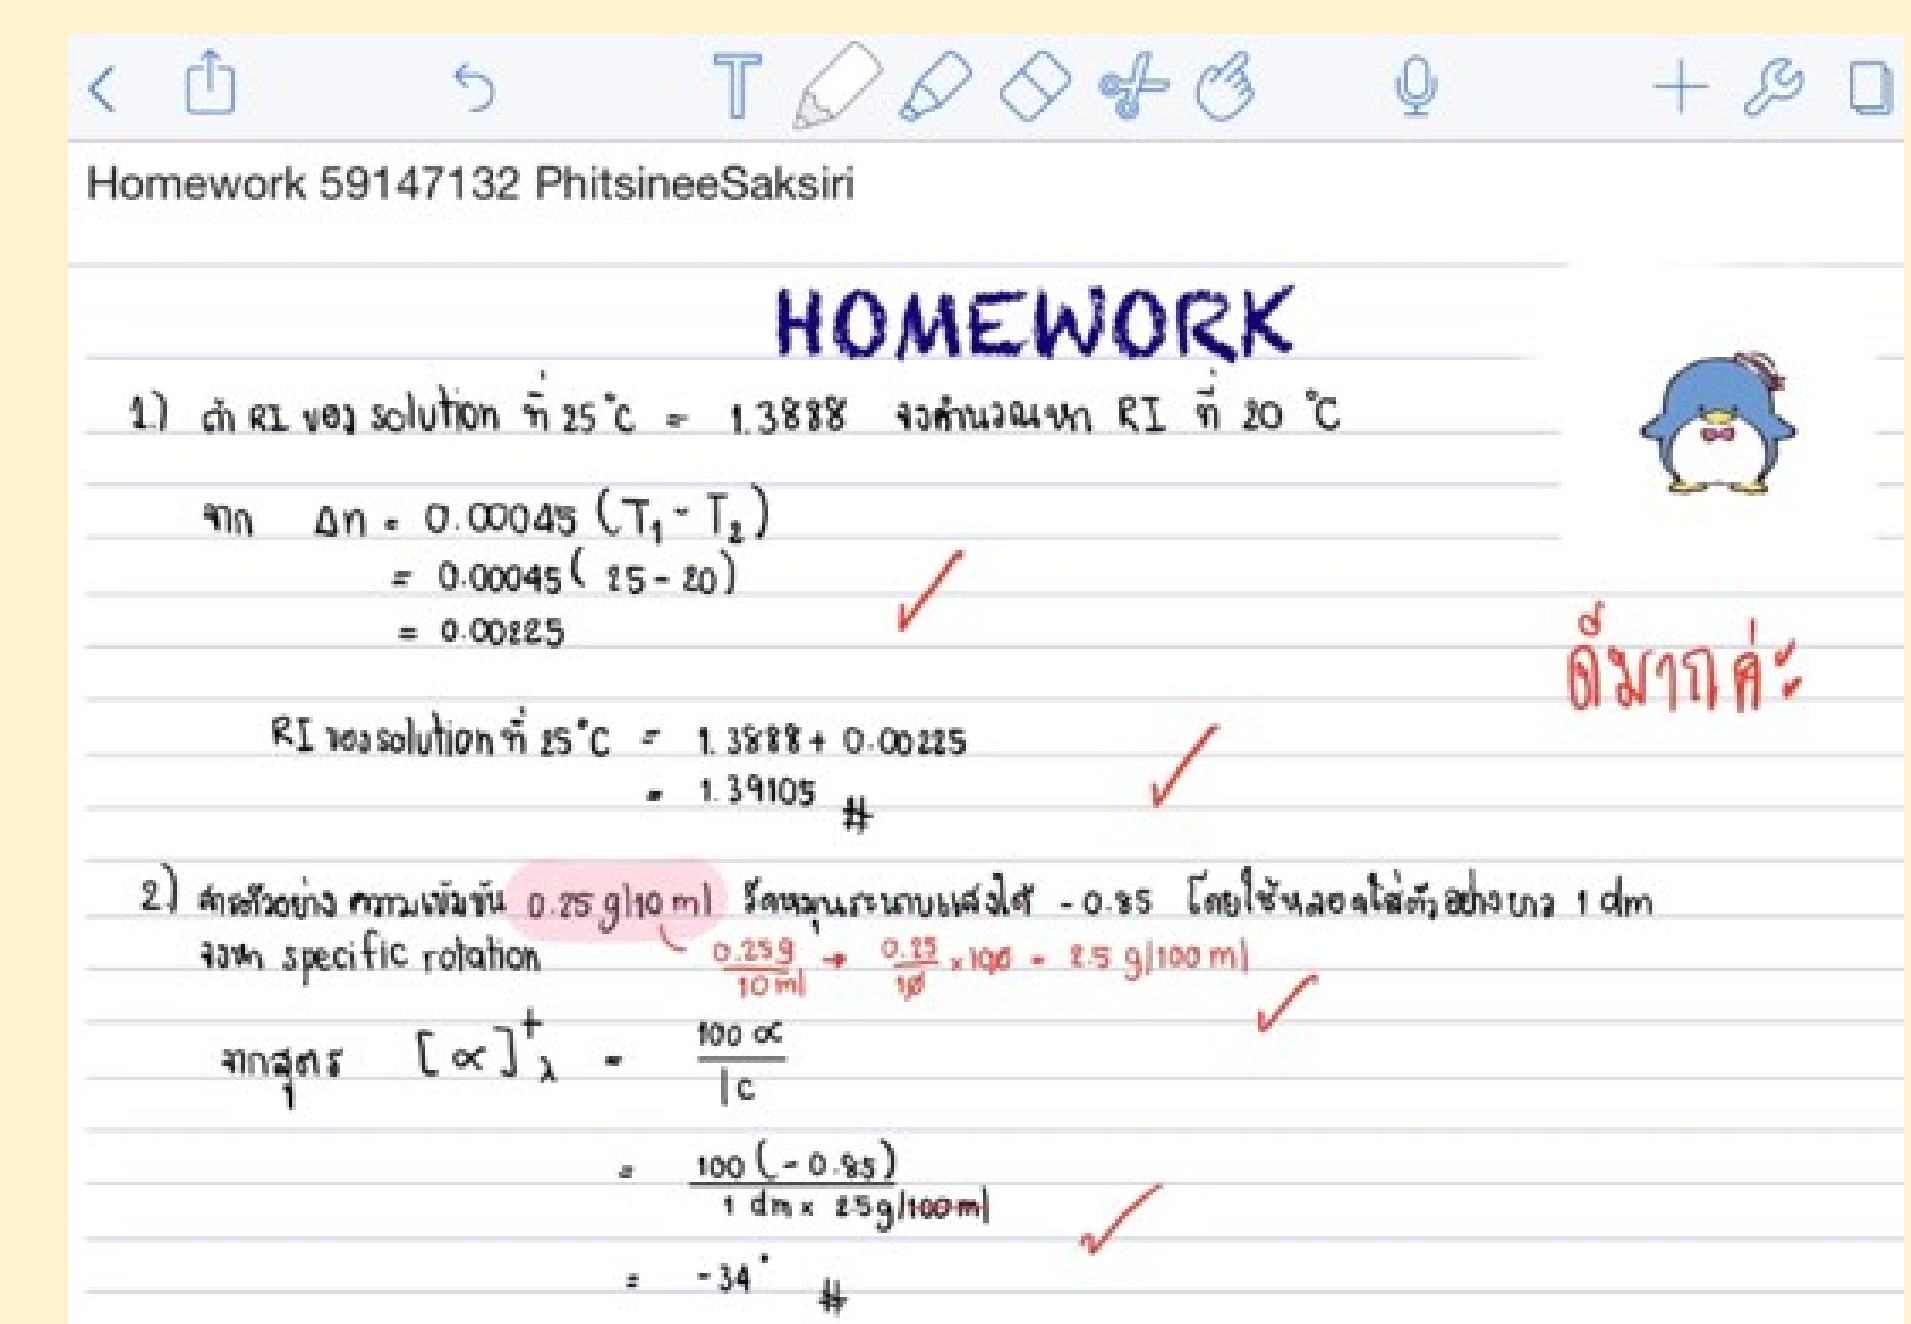 Homework 59147132 PhitsineeSaksiri
HOMEWORK
1.) ค่า RI ของ solution ที่ 25 °C = 1.3888 จงคำนวณหา RI ที่ 20 °C
จาก Δn = 0.00045 (T₁ - T₂)
= 0.00045 ( 25 - 20)
= 0.00225
ดีมากค่ะ
RI ของ solution ที่ 25 °C = 1.3888 + 0.00225
= 1.39105 #
2.) สารตัวอย่าง ความเข้มข้น 0.25 g/10 ml วัดหมุนระนาบแสงได้ - 0.85 โดยใช้หลอดใส่ตัวอย่างยาว 1 dm
จงหา specific rotation 0.25g/10 ml → 0.25/10 × 100 = 2.5 g/100 ml
จากสูตร [α]ᵗλ = 100 α / lc
= 100 (- 0.85) / 1 dm × 2.5 g/100 ml
= -34° #